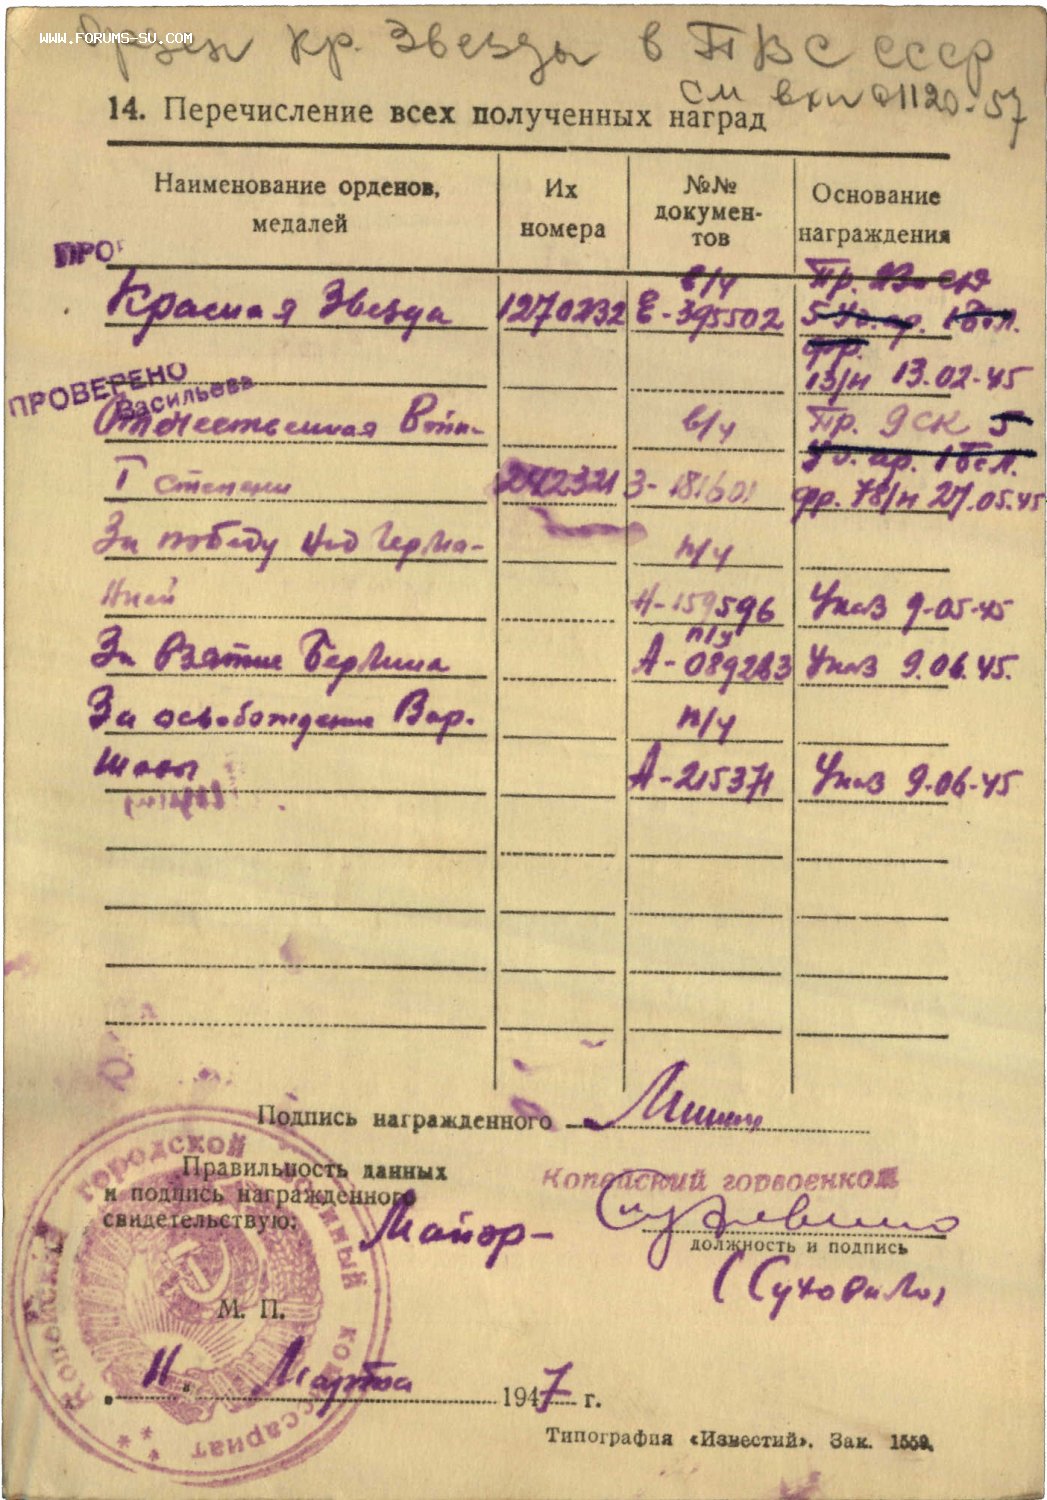 WWW.FORUMS-SU.COM
Орден Кр. Звезды в ПВС СССР
см вхи 01120-57
14. Перечисление всех полученных наград
Наименование орденов, медалей
Их номера
№№ докумен-тов
Основание награждения
ПРО
в/ч
Красная Звезда 1270232 Е-395502
13/н 13.02.45
ПРОВЕРЕНО
Васильева
Отечественная Войн- в/ч Пр. 9 СК 5
Уд. ар. 1 Бел.
I степени 242321 З-181601 фр. 78/н 27.05.45
За победу над Герма- п/у
нией Н-159596 Указ 9-05-45
п/у
За взятие Берлина А-089263 Указ 9.06.45.
За освобождение Вар- п/у
шавы А-215371 Указ 9-06-45
Подпись награжденного
Правильность данных
и подпись награжденного
свидетельствую:
Майор-
Копейский горвоенком
должность и подпись
(Суховило)
М. П.
„11“ Марта 1947 г.
Копейский городской военный комиссариат
Типография «Известий». Зак. 1559.